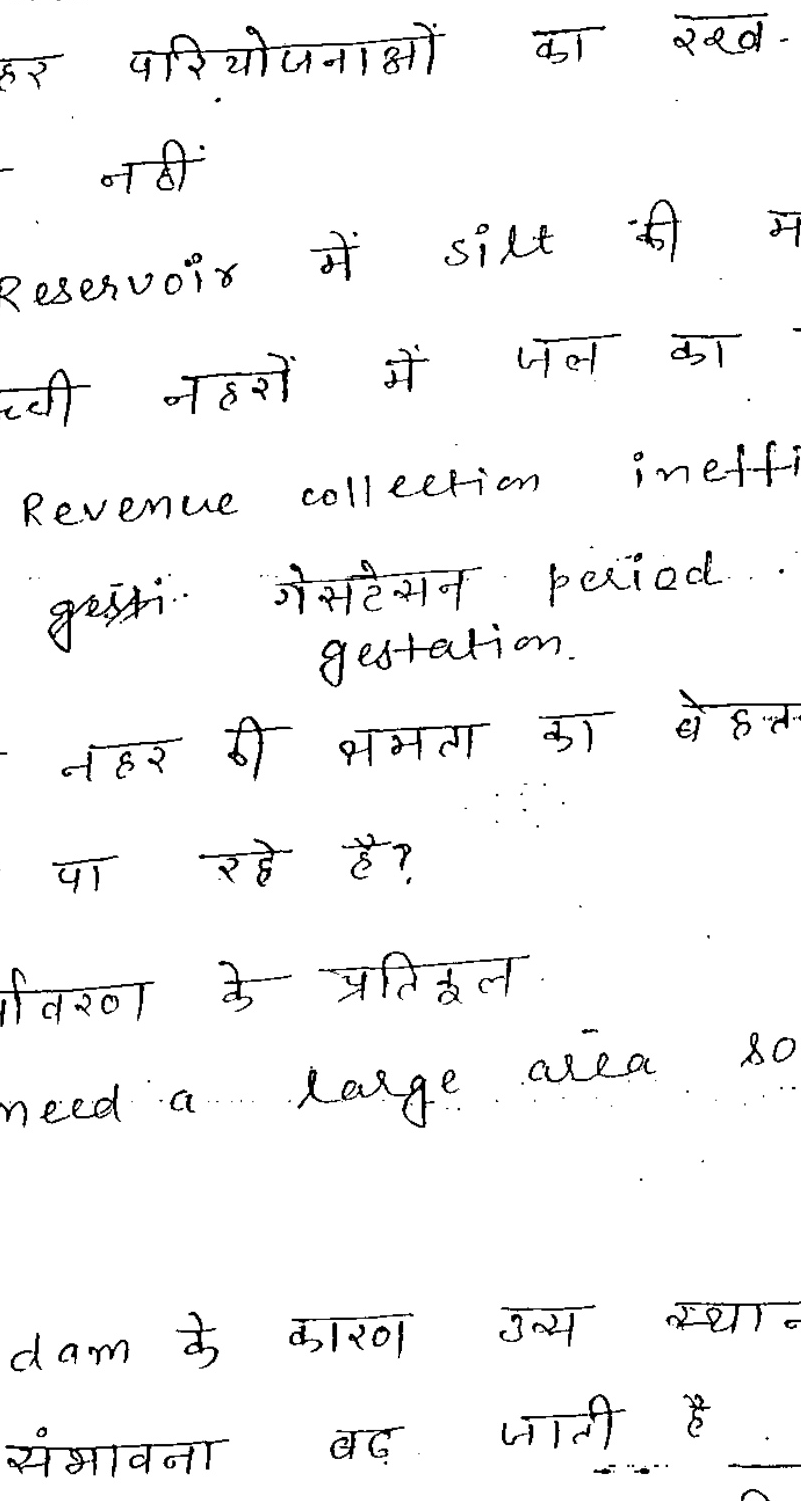 हर परियोजनाओं का रख-
- नहीं
Reservoir में silt की म
च्ची नहरों में जल का
Revenue collection ineffi
गेसटेसन period.
gestation.
- नहर की क्षमता का बेहत
पा रहे है?
र्यावरण के प्रतिकूल
need a large area so
dam के कारण उस स्थान
संभावना बढ़ जाती है